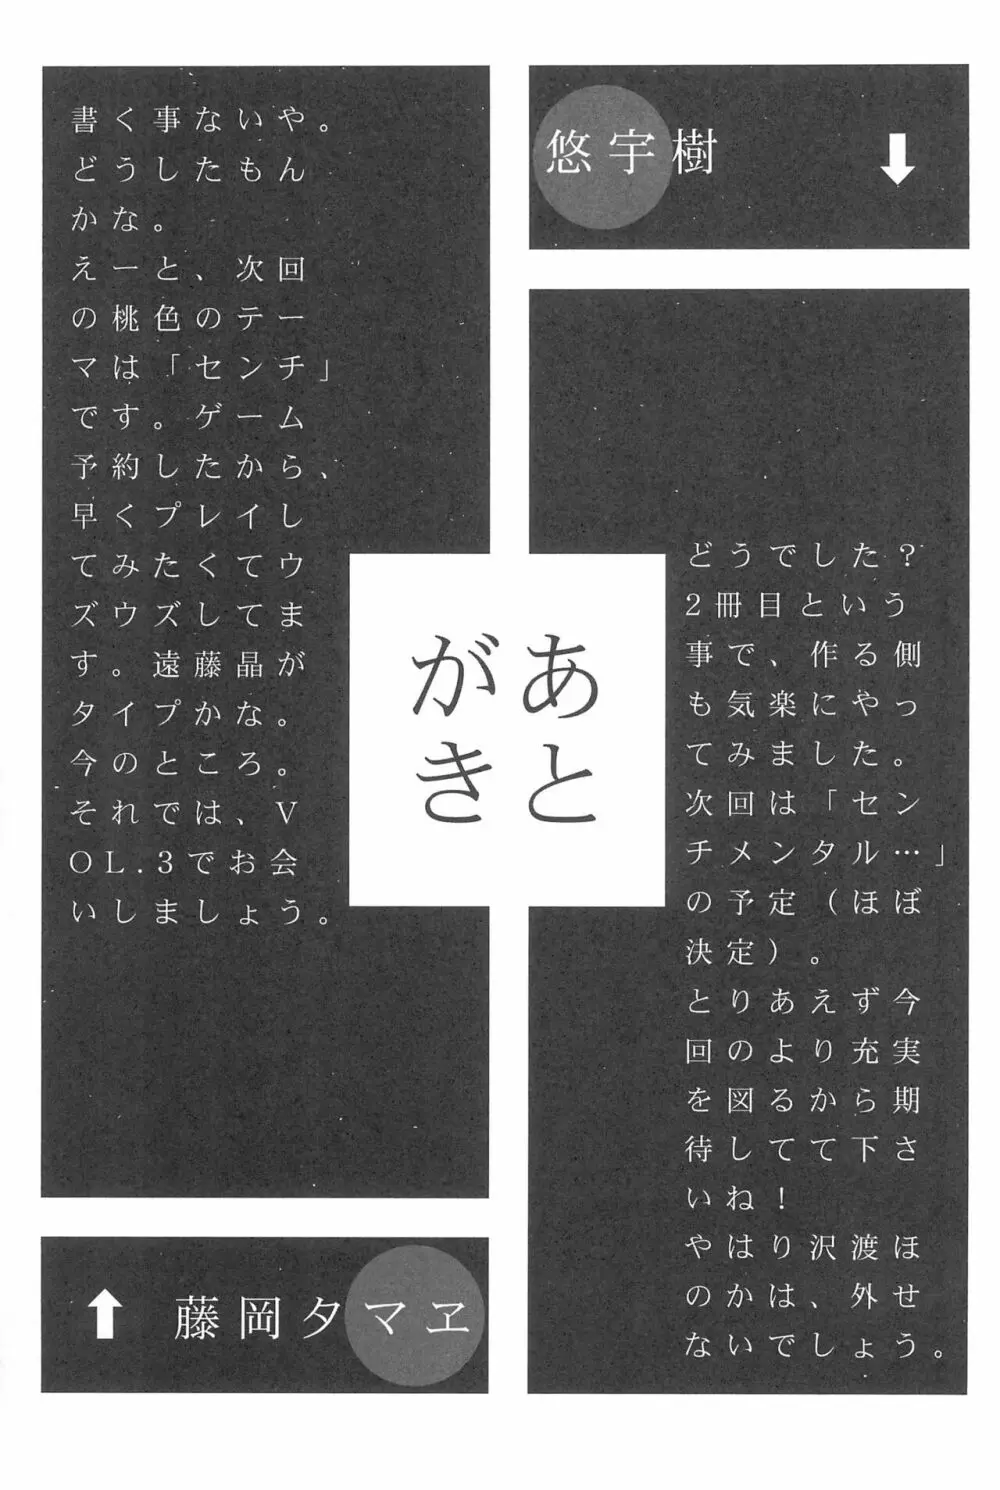 悠宇樹
どうでした?
2冊目という
事で、作る側
も気楽にやっ
てみました。
次回は「セン
チメンタル…」
の予定(ほぼ
決定)。
とりあえず今
回のより充実
を図るから期
待してて下さ
いね!
やはり沢渡ほ
のかは、外せ
ないでしょう。
あと
がき
書く事ないや。
どうしたもん
かな。
えーと、次回
の桃色のテー
マは「センチ」
です。ゲーム
予約したから、
早くプレイし
てみたくてウ
ズウズしてま
す。遠藤晶が
タイプかな。
今のところ。
それでは、V
OL.3でお会
いしましょう。
藤岡タマヱ